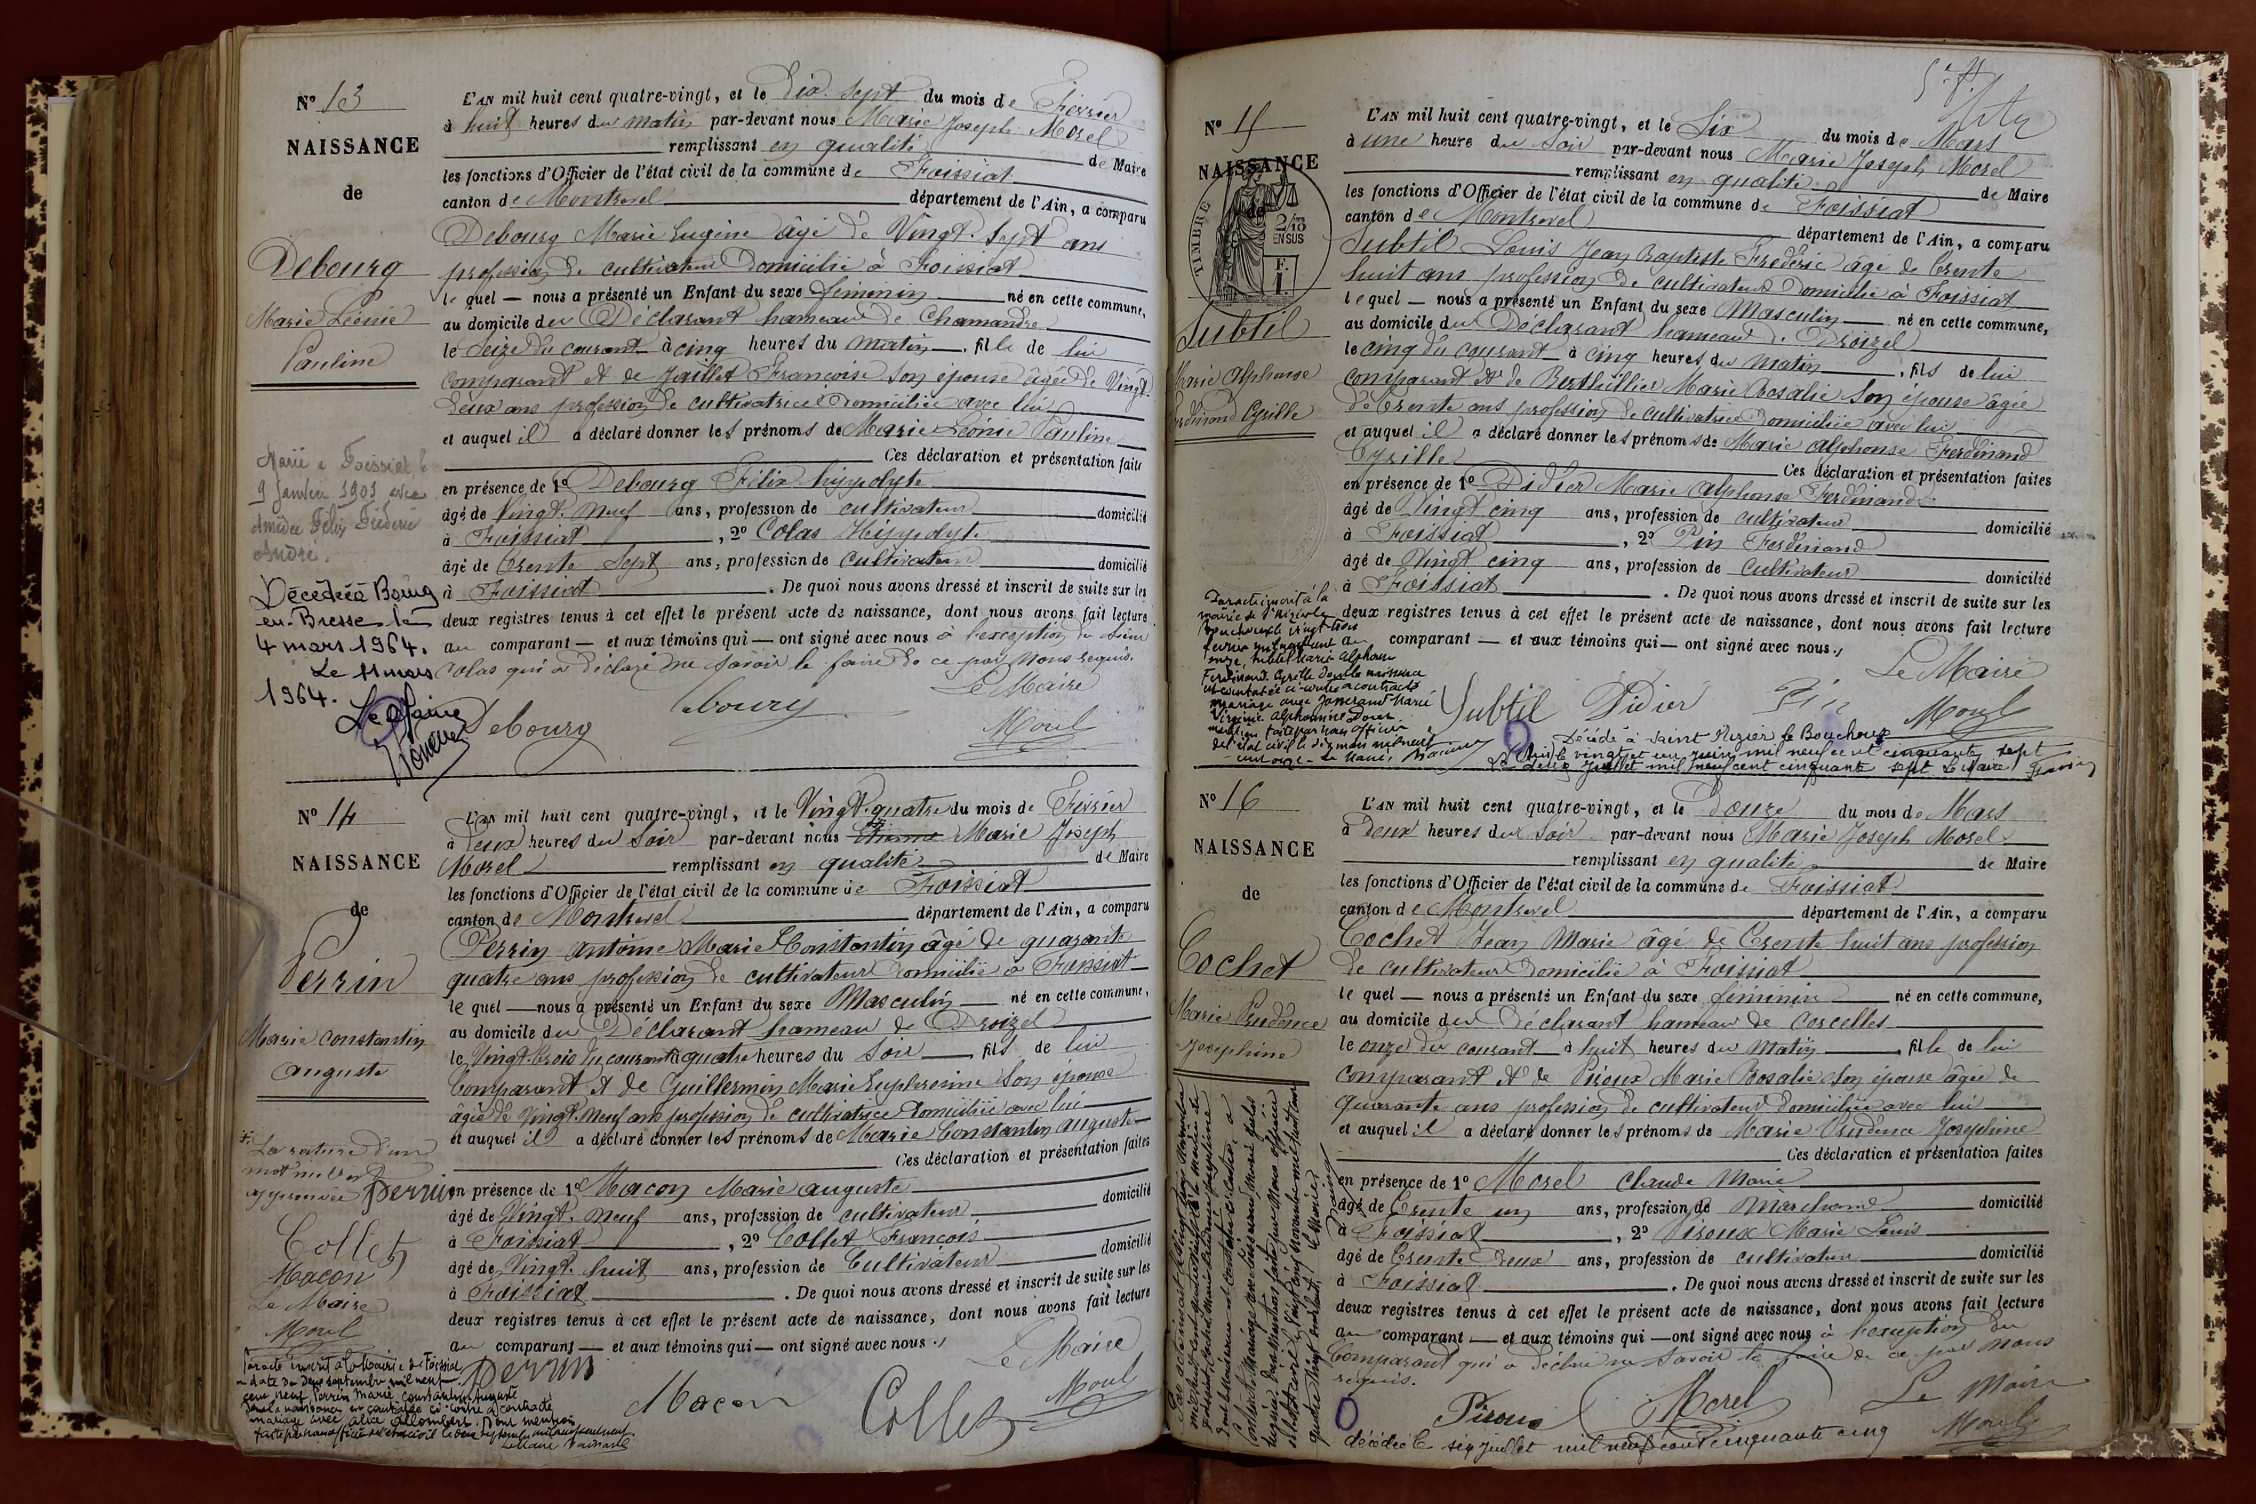 N° 13
NAISSANCE
de
Debourg
Marie Léonie
Pauline
Marié à Foissiat le
9 Janvier 1901 avec
Amédée Félix Fréderic
André.
Décédée à Bourg
en-Bresse le
4 mars 1964.
Le 11 mars
1964.
Le Maire
L'AN mil huit cent quatre-vingt, et le Dix-sept du mois de Février
à huit heures du matin par-devant nous Marie Joseph Morel
remplissant en qualité de Maire
les fonctions d'Officier de l'état civil de la commune de Foissiat
canton de Montrevel département de l'Ain, a comparu
Debourg Marie Eugène âgé de Vingt-Sept ans
profession de cultivateur domicilié à Foissiat
le quel — nous a présenté un Enfant du sexe féminin né en cette commune,
au domicile du Déclarant hameau de Chamandre
le Seize du courant à cinq heures du matin, fille de lui
comparant et de Jaillet Françoise son épouse âgée de Vingt-
deux ans profession de cultivatrice domiciliée avec lui
et auquel il a déclaré donner les prénoms de Marie Léonie Pauline
Ces déclaration et présentation faite
en présence de 1° Debourg Félix hippolyte
âgé de Vingt-neuf ans, profession de cultivateur domicilié
à Foissiat, 2° Colas Hippolyte
âgé de Trente Sept ans, profession de cultivateur domicilié
à Foissiat. De quoi nous avons dressé et inscrit de suite sur les
deux registres tenus à cet effet le présent acte de naissance, dont nous avons fait lecture
au comparant — et aux témoins qui — ont signé avec nous à l'exception du sieur
Colas qui a déclaré ne savoir le faire de ce par nous requis.
Le Maire
Debourg
Debourg
Morel
N° 14
NAISSANCE
de
Perrin
Marie Constantin
Auguste
La rature d'un
mot nul est
approuvée Perrin
Collet
Macon
Le Maire
Morel
Par acte inscrit à la Mairie de Foissiat
à date du deux septembre mil neuf
cent neuf Perrin Marie Constantin Auguste
dont la naissance est constatée ci-contre a contracté
mariage avec Alice Allombert. Dont mention
L'AN mil huit cent quatre-vingt, et le Vingt-quatre du mois de Février
à Deux heures du soir par-devant nous Marie Joseph
Morel remplissant en qualité de Maire
les fonctions d'Officier de l'état civil de la commune de Foissiat
canton de Montrevel département de l'Ain, a comparu
Perrin Antoine Marie Constantin âgé de quarante
quatre ans profession de cultivateur domicilié à Foissiat
le quel — nous a présenté un Enfant du sexe Masculin né en cette commune,
au domicile du Déclarant hameau de Droizel
le Vingt-trois du courant à quatre heures du soir, fils de lui
Comparant et de Guillermin Marie Euphrosine son épouse
âgée de Vingt-neuf ans profession de cultivatrice domiciliée avec lui
et auquel il a déclaré donner les prénoms de Marie Constantin Auguste
Ces déclaration et présentation faites
en présence de 1° Macon Marie Auguste
âgé de Vingt-neuf ans, profession de cultivateur domicilié
à Foissiat, 2° Collet François
âgé de Vingt-huit ans, profession de Cultivateur domicilié
à Foissiat. De quoi nous avons dressé et inscrit de suite sur les
deux registres tenus à cet effet le présent acte de naissance, dont nous avons fait lecture
au comparant — et aux témoins qui — ont signé avec nous.
Le Maire
Perrin
Macon
Collet
Morel
N° 15
NAISSANCE
de
TIMBRE
2/10
EN SUS
F.
1
Subtil
Marie Alphonse
Ferdinand Cyrille
Par acte inscrit à la
Ferdinand Cyrille dont la naissance
est constatée ci-contre a contracté
mariage avec Marie
L'AN mil huit cent quatre-vingt, et le Six du mois de Mars
à une heure du soir par-devant nous Marie Joseph Morel
remplissant en qualité de Maire
les fonctions d'Officier de l'état civil de la commune de Foissiat
canton de Montrevel département de l'Ain, a comparu
Subtil Louis Jean Baptiste Frédéric âgé de Trente
huit ans profession de cultivateur domicilié à Foissiat
le quel — nous a présenté un Enfant du sexe Masculin né en cette commune,
au domicile du Déclarant hameau de Droizel
le cinq du courant à cinq heures du matin, fils de lui
comparant et de Berthillier Marie Rosalie son épouse âgée
de Trente ans profession de cultivatrice domiciliée avec lui
et auquel il a déclaré donner les prénoms de Marie Alphonse Ferdinand
Cyrille Ces déclaration et présentation faites
en présence de 1° Didier Marie Alphonse Ferdinand
âgé de Vingt cinq ans, profession de cultivateur domicilié
à Foissiat, 2° Pin Ferdinand
âgé de Vingt cinq ans, profession de Cultivateur domicilié
à Foissiat. De quoi nous avons dressé et inscrit de suite sur les
deux registres tenus à cet effet le présent acte de naissance, dont nous avons fait lecture
au comparant — et aux témoins qui — ont signé avec nous.
Le Maire
Subtil Didier Pin
Morel
Décédé à Saint Nizier le Bouchoux
le vingt et un juin mil neuf cent cinquante sept
Le deux Juillet mil neuf cent cinquante sept Le Maire
N° 16
NAISSANCE
de
Cochet
Marie Prudence
Josephine
L'AN mil huit cent quatre-vingt, et le Douze du mois de Mars
à Deux heures du soir par-devant nous Marie Joseph Morel
remplissant en qualité de Maire
les fonctions d'Officier de l'état civil de la commune de Foissiat
canton de Montrevel département de l'Ain, a comparu
Cochet Jean Marie âgé de Trente huit ans profession
de cultivateur domicilié à Foissiat
le quel — nous a présenté un Enfant du sexe féminin né en cette commune,
au domicile du déclarant hameau de Corcelles
le onze du courant à huit heures du matin, fille de lui
comparant et de Piroux Marie Rosalie son épouse âgée de
Quarante ans profession de cultivateur domiciliée avec lui
et auquel il a déclaré donner les prénoms de Marie Prudence Josephine
Ces déclaration et présentation faites
en présence de 1° Morel Claude Marie
âgé de Trente un ans, profession de Marchand domicilié
à Foissiat, 2° Piroux Marie Louis
âgé de Trente deux ans, profession de cultivateur domicilié
à Foissiat. De quoi nous avons dressé et inscrit de suite sur les
deux registres tenus à cet effet le présent acte de naissance, dont nous avons fait lecture
au comparant — et aux témoins qui — ont signé avec nous à l'exception du
Comparant qui a déclaré ne savoir le faire de ce par nous
requis.
Le Maire
Piroux Morel
Morel
décédée le six juillet mil neuf cent cinquante cinq